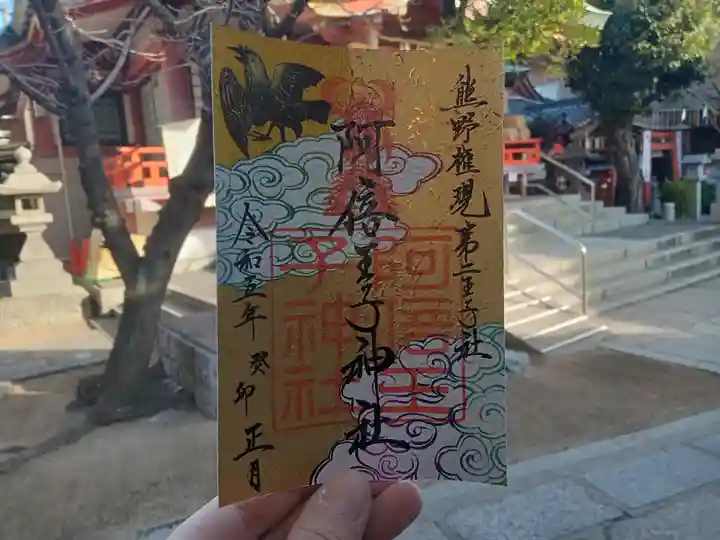 熊野権現第二王子社
阿倍王子神社
阿倍王子神社
令和五年癸卯正月